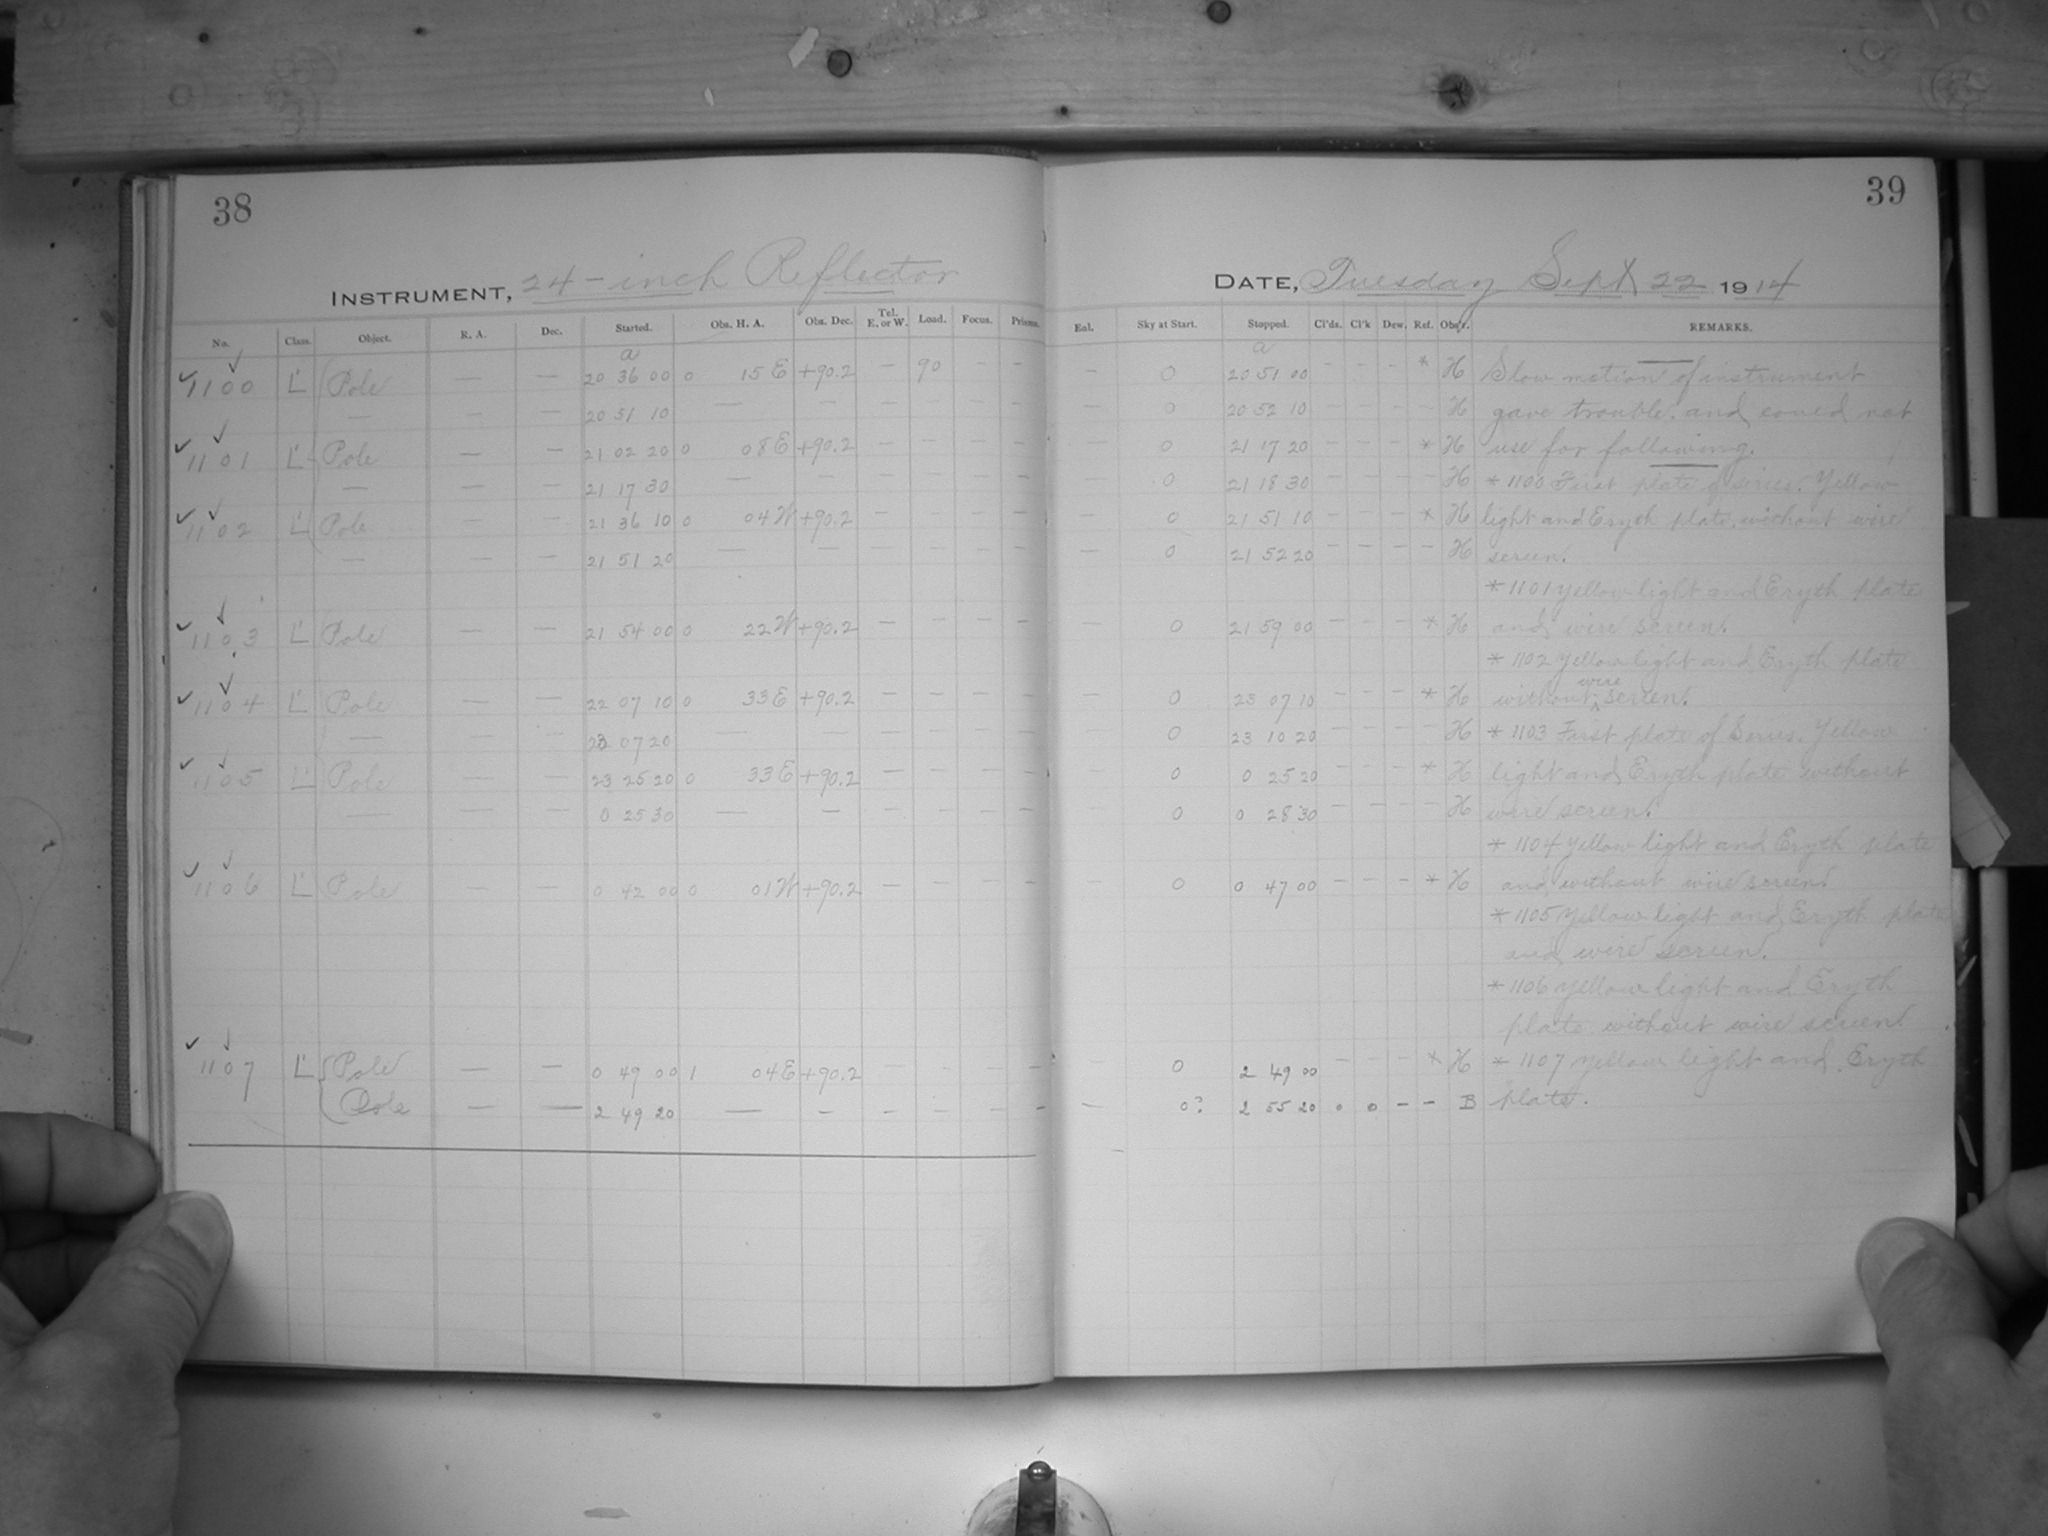 38
INSTRUMENT, 24-inch Reflector
No. Class. Object. R. A. Dec. Started. Obs. H. A. Obs. Dec. Tel. E. or W. Load. Focus. Prisms.
a
1100 L' Pole — — 20 36 00 0 15 E +90.2 — 90 — —
— — — 20 51 10 — — — — — —
1101 L' Pole — — 21 02 20 0 08 E +90.2 — — — —
— — — 21 17 30 — — — — — —
1102 L' Pole — — 21 36 10 0 04 W +90.2 — — — —
— — — 21 51 20 — — — — — —
1103 L' Pole — — 21 54 00 0 22 W +90.2 — — — —
1104 L' Pole — — 22 07 10 0 33 E +90.2 — — — —
— — — 23 07 20 — — — — — —
1105 L' Pole — — 23 25 20 0 33 E +90.2 — — — —
— — — 0 25 30 — — — — — —
1106 L' Pole — — 0 42 00 0 01 W +90.2 — — — —
1107 L' Pole — — 0 49 00 1 04 E +90.2 — — — —
Pole — — 2 49 20 — — — — — —
39
DATE, Tuesday Sept 22 1914
Eal. Sky at Start. Stopped. Cl'ds. Cl'k Dew. Ref. Obs'r. REMARKS.
a
— 0 20 51 00 — — — * H Slow motion of instrument
— 0 20 52 10 — — — — H gave trouble and could not
— 0 21 17 20 — — — * H use for following.
— 0 21 18 30 — — — — H * 1100 First plate of series. Yellow
— 0 21 51 10 — — — * H light and Eryth plate, without wire
— 0 21 52 20 — — — — H screen.
* 1101 Yellow light and Eryth plate
— 0 21 59 00 — — — * H and wire screen.
* 1102 Yellow light and Eryth plate
— 0 23 07 10 — — — * H without wire screen.
— 0 23 10 20 — — — — H * 1103 First plate of Series. Yellow
— 0 0 25 20 — — — * H light and Eryth plate without
— 0 0 28 30 — — — — H wire screen.
* 1104 Yellow light and Eryth plate
— 0 0 47 00 — — — * H and without wire screen.
* 1105 Yellow light and Eryth plate
and wire screen.
* 1106 Yellow light and Eryth
plate without wire screen.
— 0 2 49 00 — — — * H * 1107 Yellow light and Eryth
— 0? 2 55 20 0 0 — — B plate.